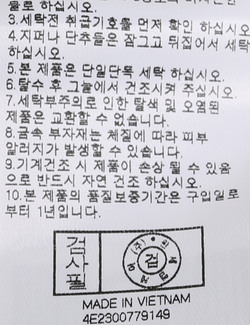 물로 하십시오.
3.세탁전 취급기호를 먼저 확인 하십시오
4.지퍼나 단추들은 잠그고 뒤집어서 세탁
하십시오.
5.본 제품은 단일단독 세탁 하십시오.
6.탈수 후 그늘에서 건조시켜 주십시오.
7.세탁부주의로 인한 탈색 및 오염된
제품은 교환할 수 없습니다.
8.금속 부자재는 체질에 따라 피부
알러지가 발생할 수 있습니다.
9.기계건조 시 제품이 손상 될 수 있음
으로 반드시 자연 건조 하십시오.
10.본 제품의 품질보증기간은 구입일로
부터 1년입니다.
검
사
필
(주)
검
MADE IN VIETNAM
4E2300779149